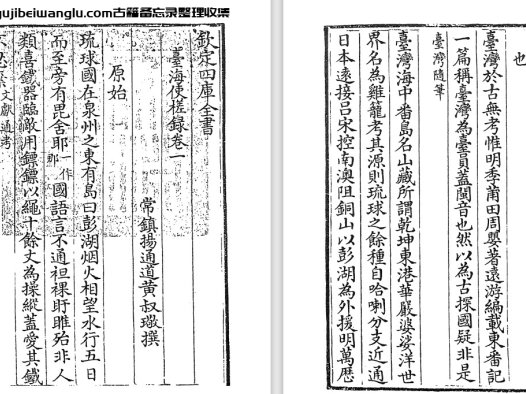 gujibeiwanglu.com古籍备忘录整理收集
欽定四庫全書
臺海使槎録卷一
常鎮揚通道黃叔璥撰
原始
琉球國在泉州之東有島曰彭湖烟火相望水行五日
而至旁有毘舍耶一作那國語言不通袒裸盱睢殆非人
類喜鐵器臨敵用鏢鏢以繩十餘丈為操縱蓋愛其鐵
不忍棄文獻通考
也
臺灣於古無考惟明季莆田周嬰著遠游編載東番記
一篇稱臺灣為臺員蓋閩音也然以為古探國疑非是
臺灣隨筆
臺灣海中番島名山藏所謂乾坤東港華嚴婆娑洋世
界名為雞籠考其源則琉球之餘種自哈喇分支近通
日本遠接呂宋控南澳阻銅山以彭湖為外援明萬歴